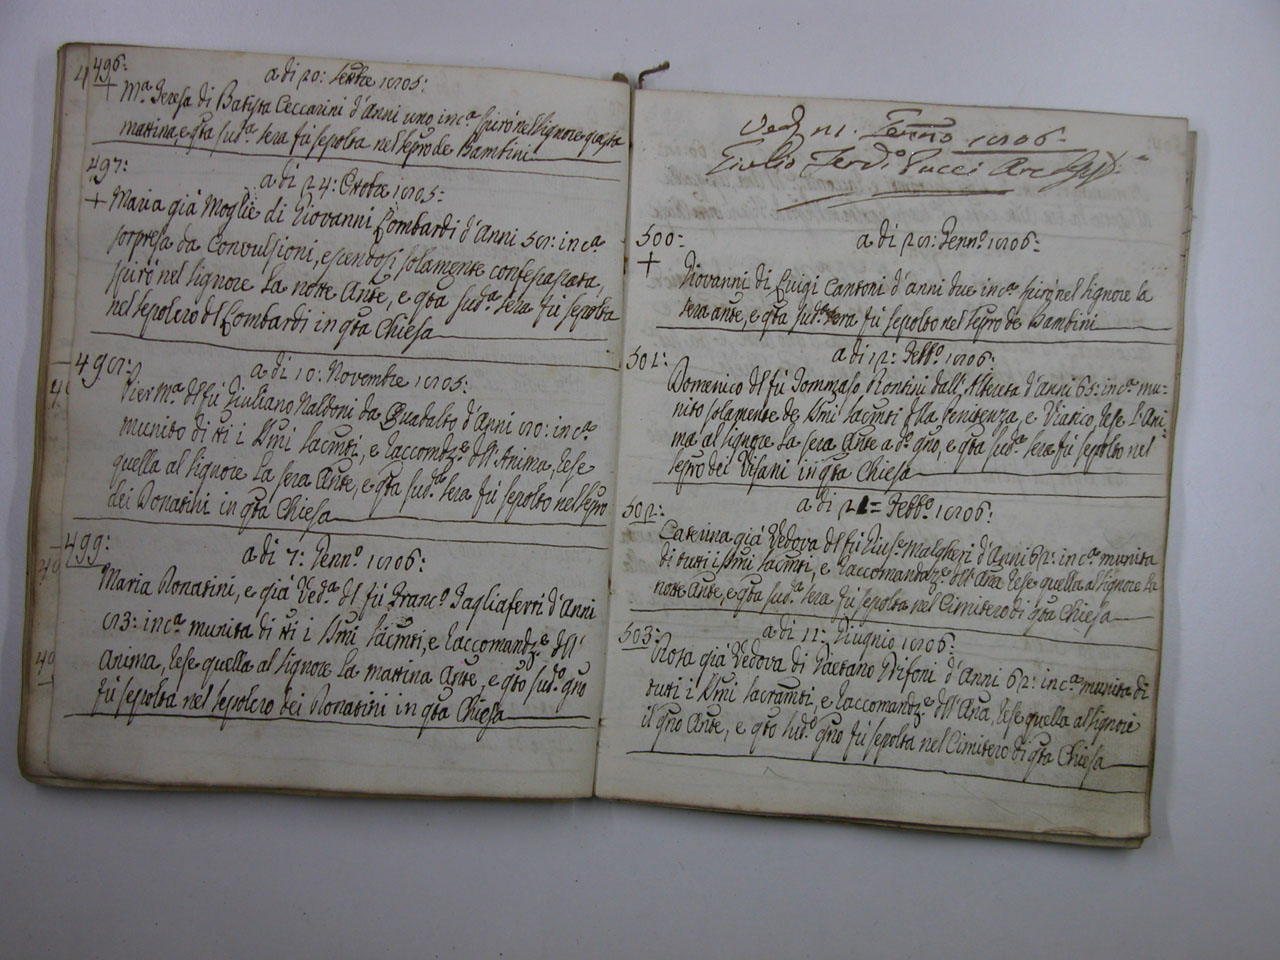 496:
a di 20: Settbre 1805:
Mª Teresa di Batista Ceccarini d'Anni uno incª spirò nel Signore questa
mattina, e qta sudª sera fù sepolta nel Sepro de Bambini
497:
a di 24: Ottbre 1805:
Maria già Moglie di Giovanni Lombardi d'Anni 58: incª
sorpresa da Convulsioni, essendosi solamente confessata,
spirò nel Signore la notte Ante, e qta sudª sera fù sepolta
nel sepolcro dl Lombardi in qta Chiesa
498:
a di 10: Novembre 1805:
Pier Mª dl fù Giuliano Naldoni da Quadalto d'Anni 80: incª
munito di tti i SSmi Sacmti, e Raccomdze dll'Anima, rese
quella al Signore la sera Ante, e qta sudª sera fù sepolto nel Sepro
dei Donatini in qta Chiesa
499:
a di 7: Gennº 1806:
Maria Donatini, e già Vedª dl fù Francº Tagliaferri d'Anni
83: incª munita di tti i SSmi Sacmti, e Raccomandze dll'
Anima, rese quella al Signore la mattina Ante, e qto sudº gno
fù sepolta nel sepolcro dei Donatini in qta Chiesa
Gennº 1806
Giulio Ferdº Pucci
500:
a di 28: Gennº 1806:
Giovanni di Luigi Cantoni d'anni due incª spirò nel Signore la
sera ante, e qta sudª sera fù sepolto nel sepro de Bambini
501:
a di 12: Febbº 1806:
Domenico dl fù Tommaso Rontini dall'Altreta d'anni 65: incª mu-
nito solamente de SSmi Sacmti dlla Penitenza, e Viatico, rese l'Ani-
ma al Signore la sera Ante a dº gno, e qta sudª sera fù sepolto nel
sepro dei Visani in qta Chiesa
502:
a di 21= Febbº 1806:
Caterina già Vedova dl fù Giuse Malgheri d'Anni 62: incª munita
di tutti i SSmi Sacmti, e Raccomandaze dll'Ana rese quella al Signore la
notte Ante, e qta sudª sera fù sepolta nel Cimitero di qta Chiesa
503:
a di 11: Giugnio 1806:
Rosa già Vedova di Gaetano Grifoni d'Anni 62: incª munita di
tutti i SSmi Sacramti, e Raccomandze dll'Ana, rese quella al Signore
il gno Ante, e qto sudº gno fù sepolta nel Cimitero di qta Chiesa